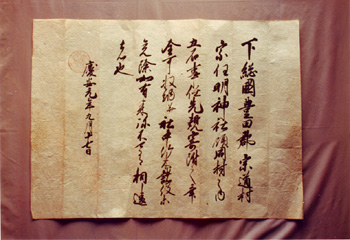 下総國豊田郡宗道村
宗任明神社領同村之内
五石事任先規寄附之畢
全可収納并社中竹木諸役等
免除如有来永不可有相違
者也
慶安元年九月十七日